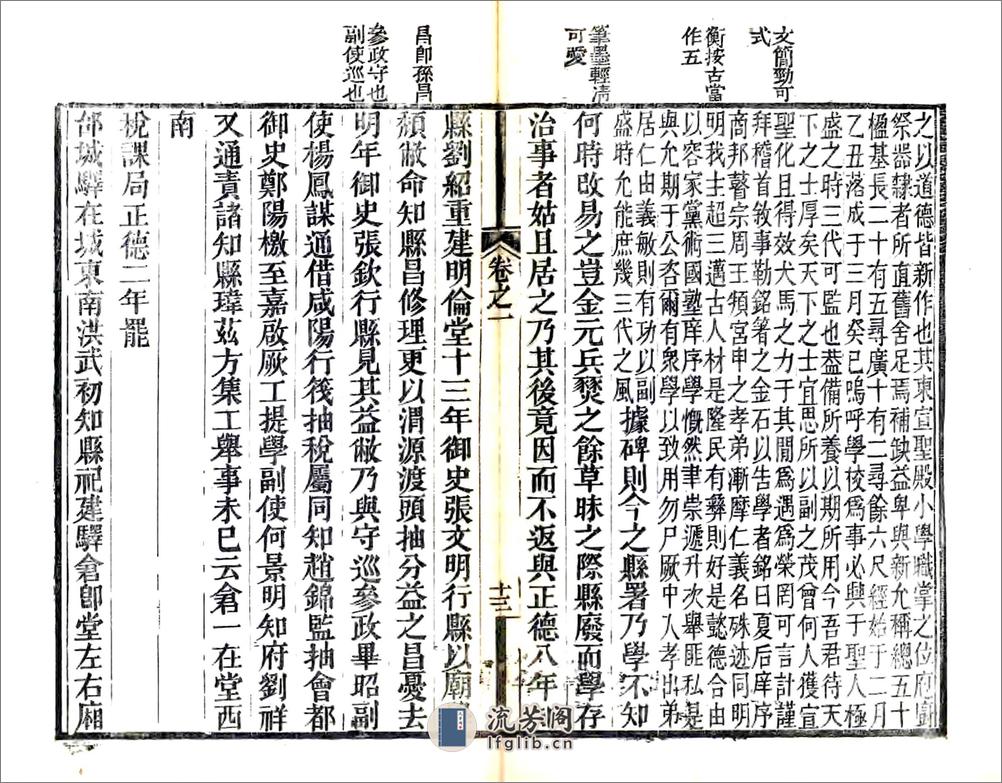 文簡勁可
式
衡按古當
作五
筆墨輕清
可愛
昌卽孫昌
參政守也
副使巡也
之以道德皆新作也其東宣聖殿小學職掌之位府廚
祭器隸者所直舊舍足焉補缺益卑與新允稱總五十
楹基長二十有五尋廣十有二尋餘六尺經始于二月
乙丑落成于三月癸巳嗚呼學校爲事必興于聖人極
盛之時三代可監也葢備所養以期所用今吾君待天
下之士厚矣天下之士宜思所以副之茂曾何人獲宣
聖化且得效犬馬之力于其閒爲遇爲榮罔可言計謹
拜稽首敘事勒銘箸之金石以告學者銘曰夏后庠序
商邦瞽宗周王頖宮申之孝弟漸摩仁義名殊迹同明
明我士超三邁古人材是隆民有彝則好是懿德合由
以容家黨術國塾庠序學慨然聿崇遞升次舉匪私是
與允期于公咨爾有衆學以致用勿尸厥中入孝出弟
居仁由義敏則有功以副
盛時允能庶幾三代之風
據碑則今之縣署乃學不知
何時改易之豈金元兵燹之餘草昧之際縣廢而學存
治事者姑且居之乃其後竟因而不返與正德八年
卷之一
十三
縣劉紹重建明倫堂十三年御史張文明行縣以廟
頹敝命知縣昌修理更以渭源渡頭抽分益之昌憂去
明年御史張欽行縣見其益敝乃與守巡參政畢昭副
使楊鳳謀通借咸陽行筏抽稅屬同知趙錦監抽會都
御史鄭陽檄至嘉啟厥工提學副使何景明知府劉祥
又通責諸知縣瑋茲方集工舉事未巳云倉一在堂西
南
稅課局正德二年罷
邰城驛在城東南洪武初知縣祀建驛倉卽堂左右廂
流芳阁
lfglib.cn